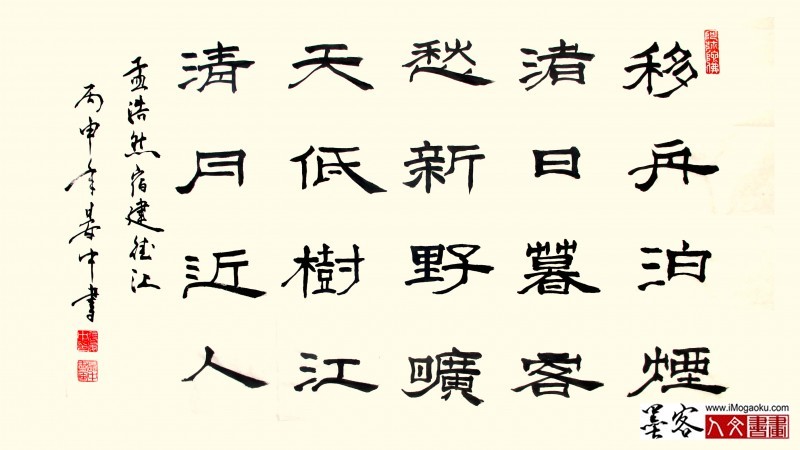 移舟泊煙
渚日暮客
愁新野曠
天低樹江
清月近人
孟浩然宿建德江
丙申年中書
墨客
www.iMogaoku.com
人文書畫